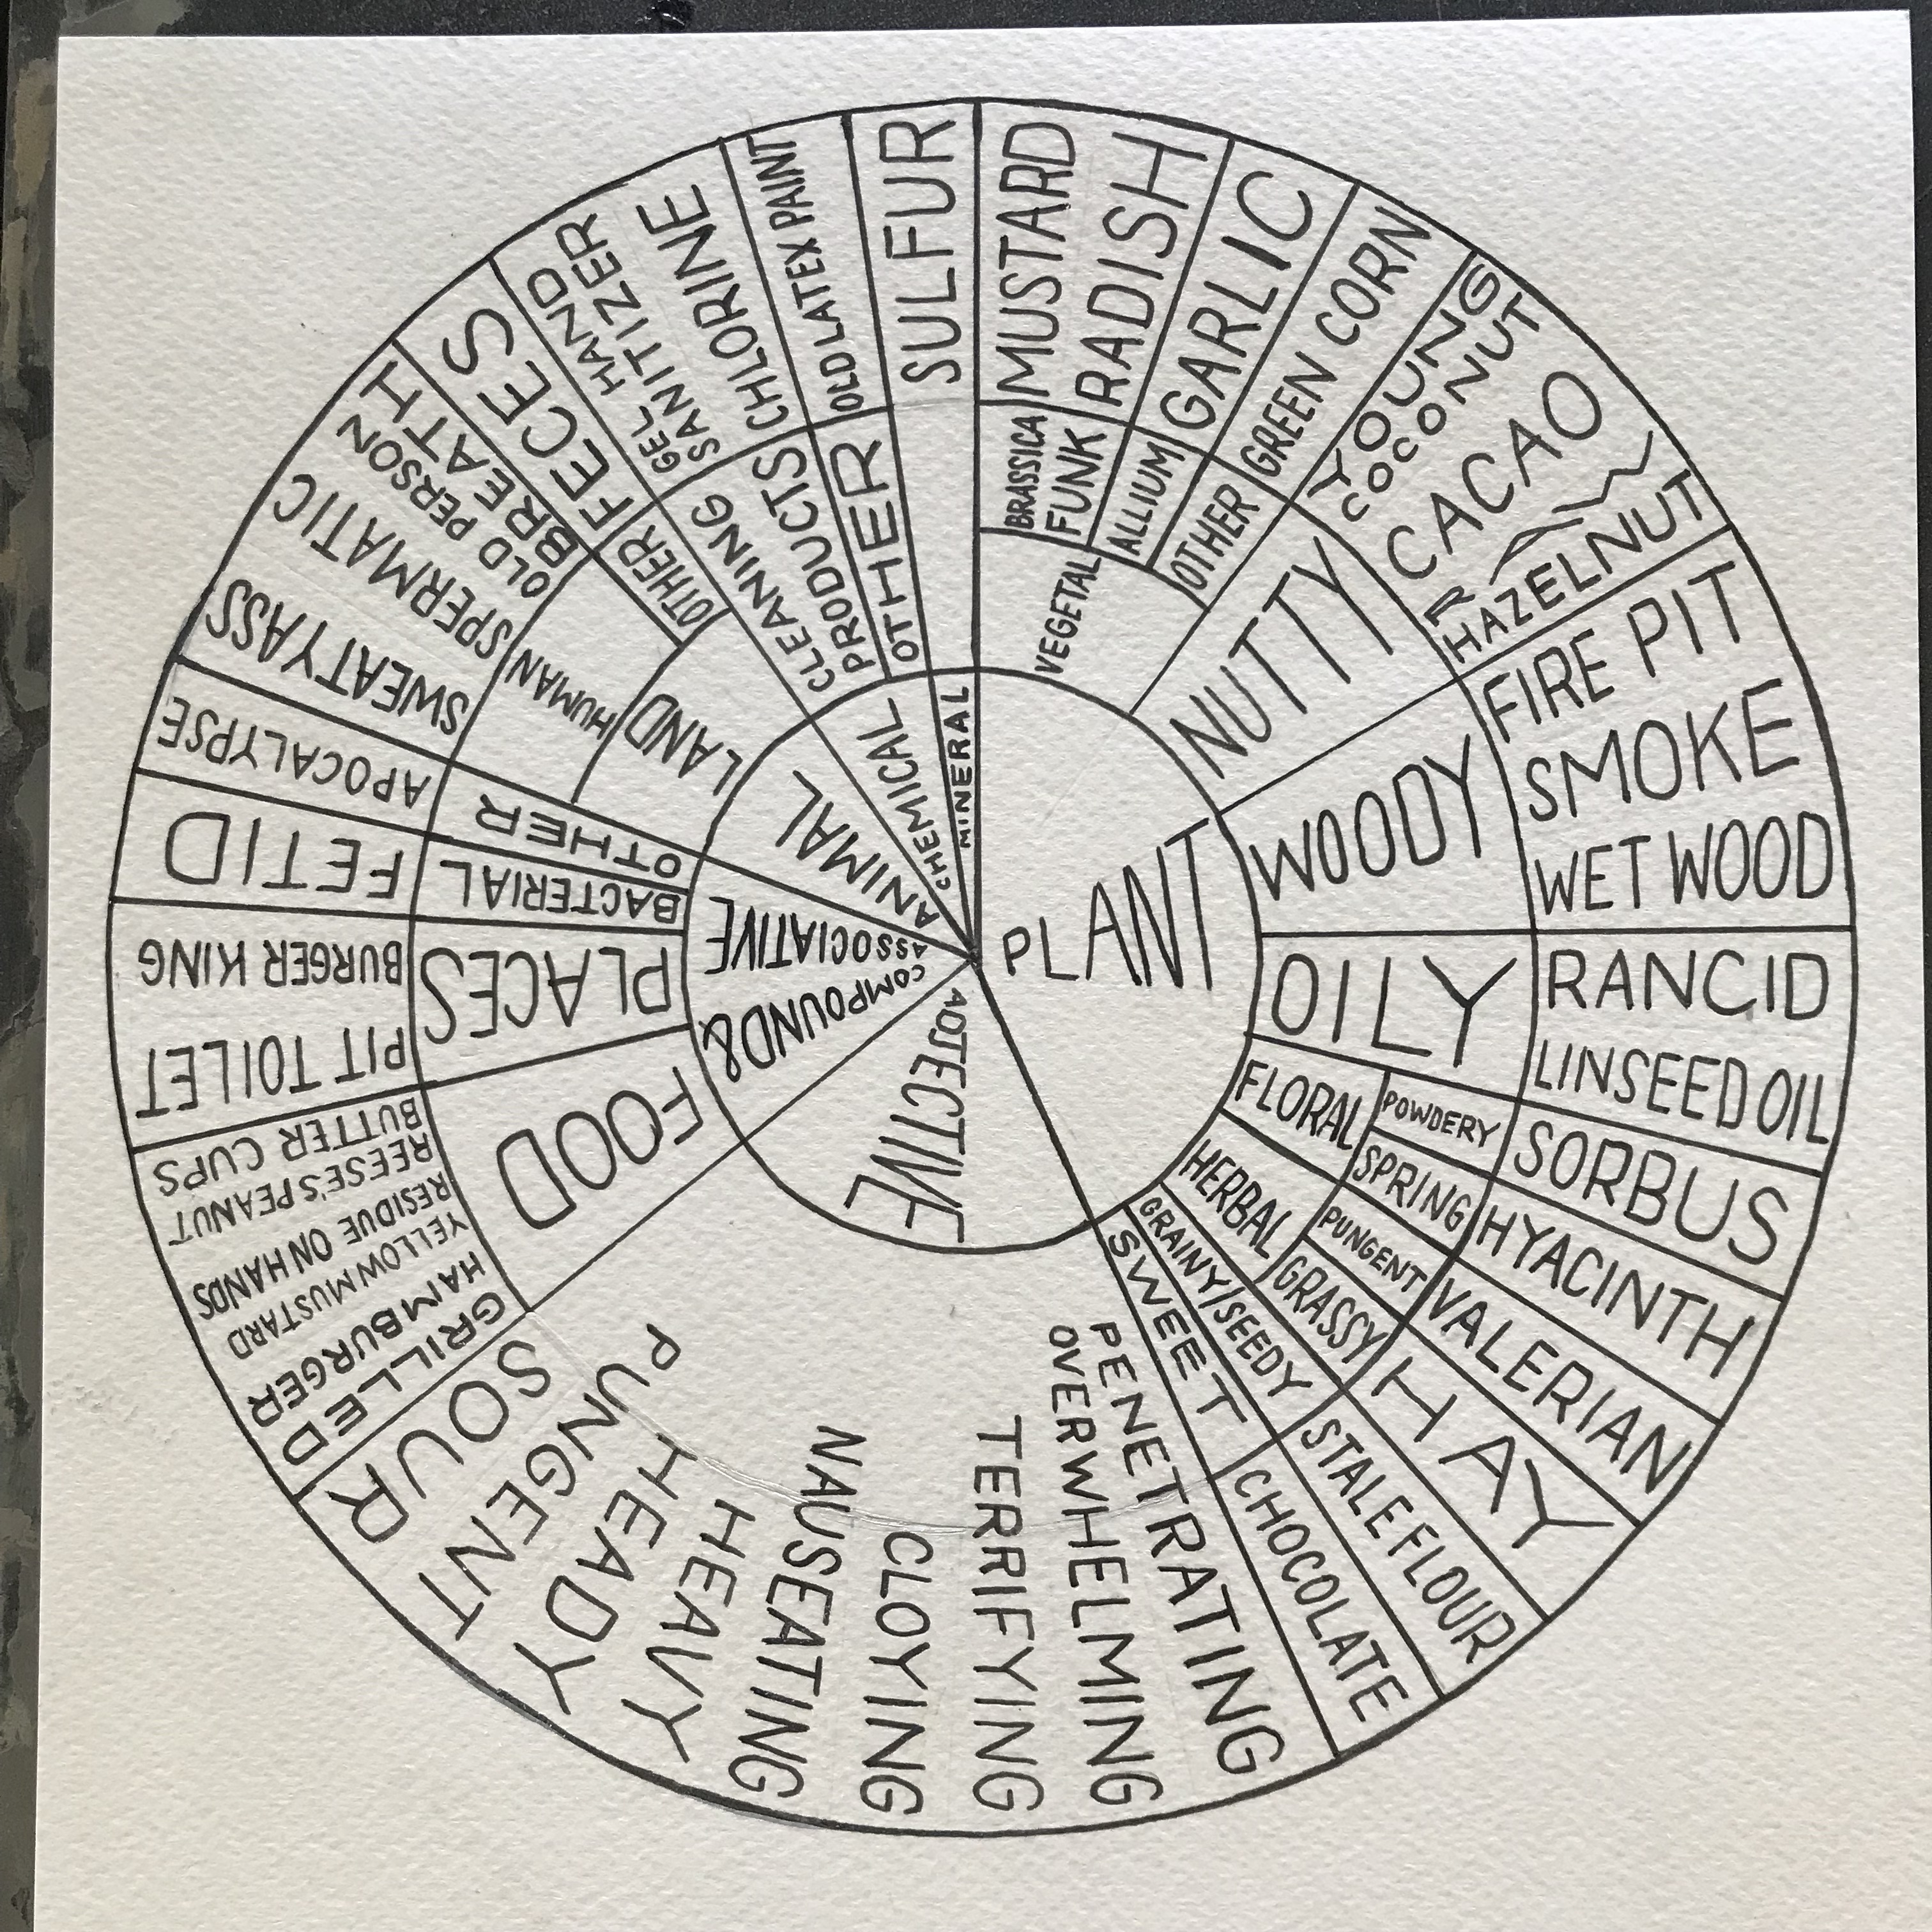 PLANT
VEGETAL
BRASSICA
FUNK
MUSTARD
RADISH
ALLIUM
GARLIC
OTHER
GREEN CORN
NUTTY
YOUNG
COCONUT
CACAO
RAW
HAZELNUT
WOODY
FIRE PIT
SMOKE
WET WOOD
OILY
RANCID
LINSEED OIL
FLORAL
POWDERY
SORBUS
SPRING
HYACINTH
HERBAL
PUNGENT
VALERIAN
GRASSY
HAY
GRAINY/SEEDY
STALE FLOUR
SWEET
CHOCOLATE
ADJECTIVE
PENETRATING
OVERWHELMING
TERRIFYING
CLOYING
NAUSEATING
HEAVY
HEADY
PUNGENT
SOUR
COMPOUND &
ASSOCIATIVE
FOOD
GRILLED
HAMBURGER
YELLOW MUSTARD
RESIDUE ON HANDS
REESE'S PEANUT
BUTTER CUPS
PLACES
PIT TOILET
BURGER KING
BACTERIAL
FETID
OTHER
APOCALYPSE
ANIMAL
LAND
HUMAN
SWEATY ASS
SPERMATIC
OLD PERSON
BREATH
OTHER
FECES
CHEMICAL
CLEANING
PRODUCTS
GEL HAND
SANITIZER
CHLORINE
OTHER
OLD LATEX PAINT
MINERAL
SULFUR